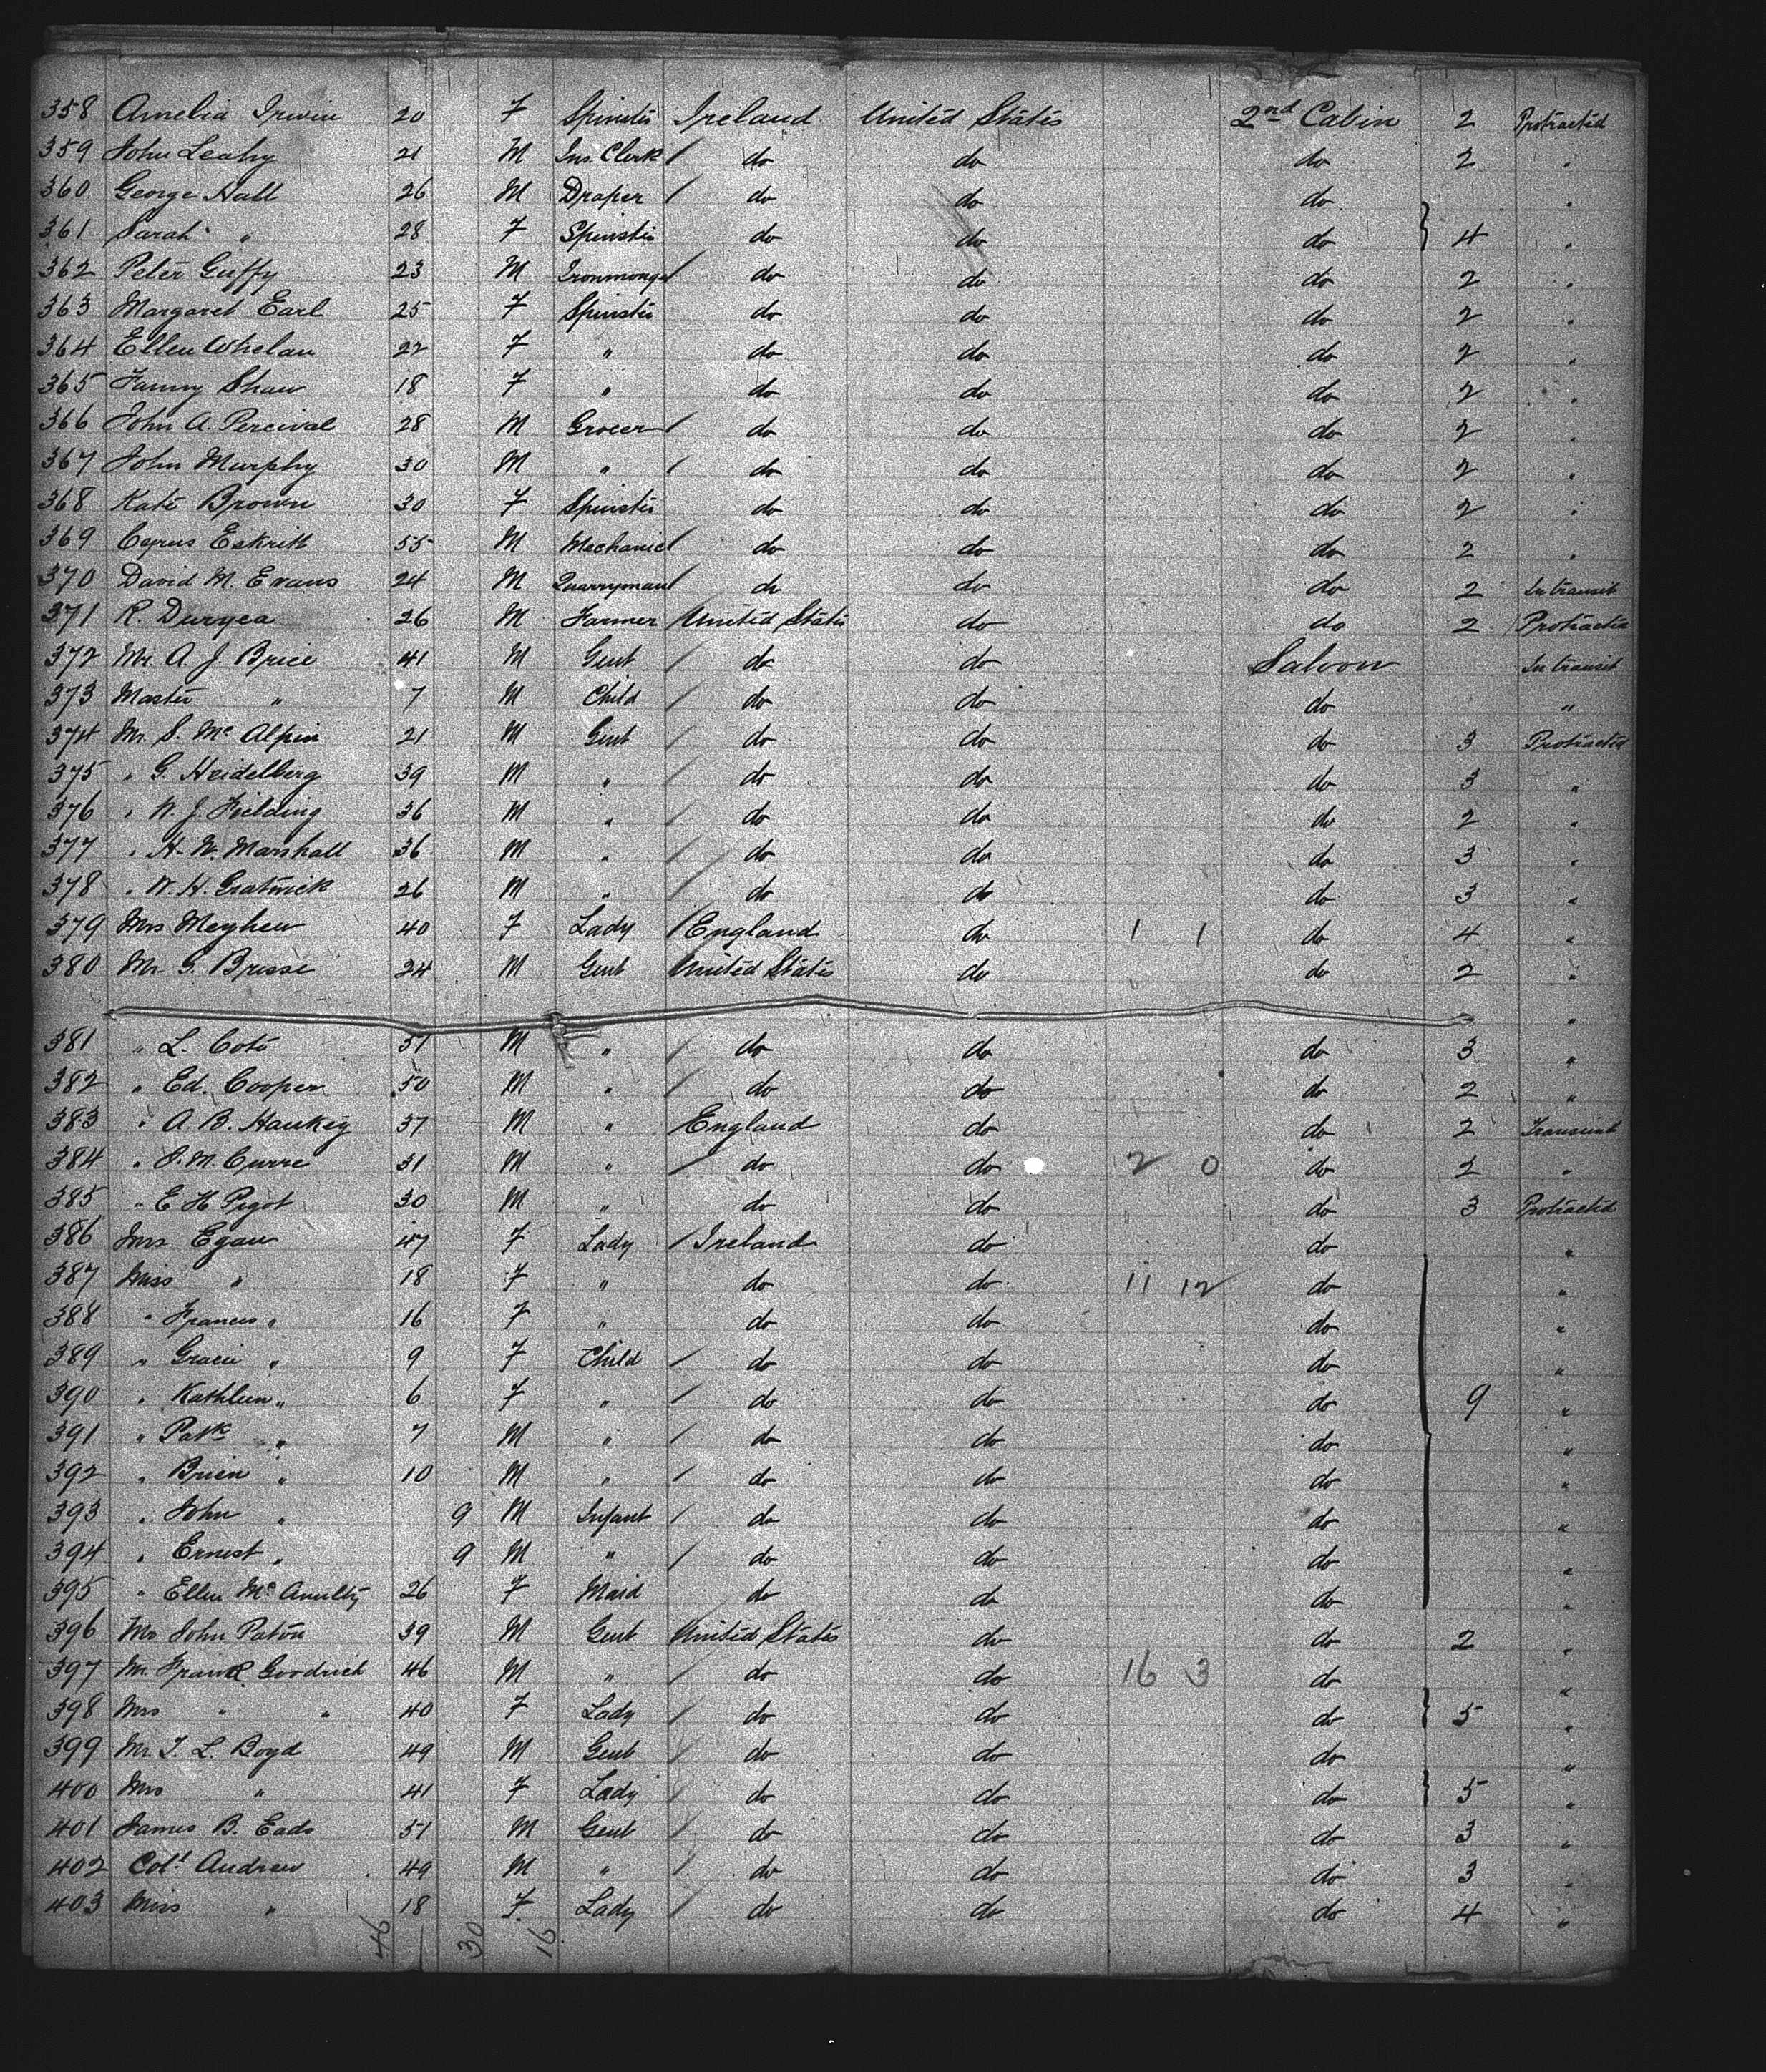 358 Amelia Irwin 20 F Spinster Ireland United States 2nd Cabin 2 Protracted
359 John Leahy 21 M Ins. Clerk / do do do 2 "
360 George Hall 26 M Draper / do do do "
361 Sarah " 28 F Spinster do do do 4 "
362 Peter Guffy 23 M Ironmonger / do do do 2 "
363 Margaret Earl 25 F Spinster do do do 2 "
364 Ellen Whelan 22 F " do do do 2 "
365 Fanny Shaw 18 F " do do do 2 "
366 John A. Percival 28 M Grocer / do do do 2 "
367 John Murphy 30 M " / do do do 2 "
368 Kate Brown 30 F Spinster do do do 2 "
369 Cyrus Eskritt 55 M Mechanic / do do do 2 "
370 David M. Evans 24 M Quarryman / do do do 2 In transit
371 R. Duryea 26 M Farmer United States do do 2 Protracted
372 Mr. A. J. Brice 41 M Gent / do do Saloon In transit
373 Master " 7 M Child / do do do "
374 Mr. S. Mc Alpin 21 M Gent / do do do 3 Protracted
375 " G. Heidelberg 39 M " / do do do 3 "
376 " W. J. Fielding 36 M " / do do do 2 "
377 " H. W. Marshall 36 M " / do do do 3 "
378 " W. H. Gratwick 26 M " / do do do 3 "
379 Mrs Meyhew 40 F Lady / England do 1 1 do 4 "
380 Mr. G. Brisse 24 M Gent United States do do 2 "
"
381 " L. Coté 51 M " / do do do 3 "
382 " Ed. Cooper 50 M " / do do do 2 "
383 " A. B. Hankey 37 M " England do do 2 Transient
384 " J. M. Curre 31 M " / do do 2 0 do 2 "
385 " E H Pigot 30 M " do do do 3 Protracted
386 Mrs Egan 47 F Lady / Ireland do do "
387 Miss " 18 F " do do 11 12 do "
388 " Frances " 16 F " do do do "
389 " Gracie " 9 F Child / do do do "
390 " Kathleen " 6 F " / do do do 9 "
391 " Patk " 7 M " / do do do "
392 " Brien " 10 M " / do do do "
393 " John " 9 M Infant / do do do "
394 " Ernest " 9 M " / do do do "
395 " Ellen Mc Anulty 26 F Maid do do do "
396 Mr John Paton 39 M Gent United States do do 2 "
397 Mr. Frank Goodrich 46 M " / do do 16 3 do "
398 Mrs " " 40 F Lady / do do do 5 "
399 Mr. T. L. Boyd 49 M Gent / do do do "
400 Mrs " 41 F Lady / do do do 5 "
401 James B. Eads 57 M Gent / do do do 3 "
402 Colt Andrew 49 M " / do do do 3 "
403 Miss " 18 F. Lady / do do do 4 "
46 30 16